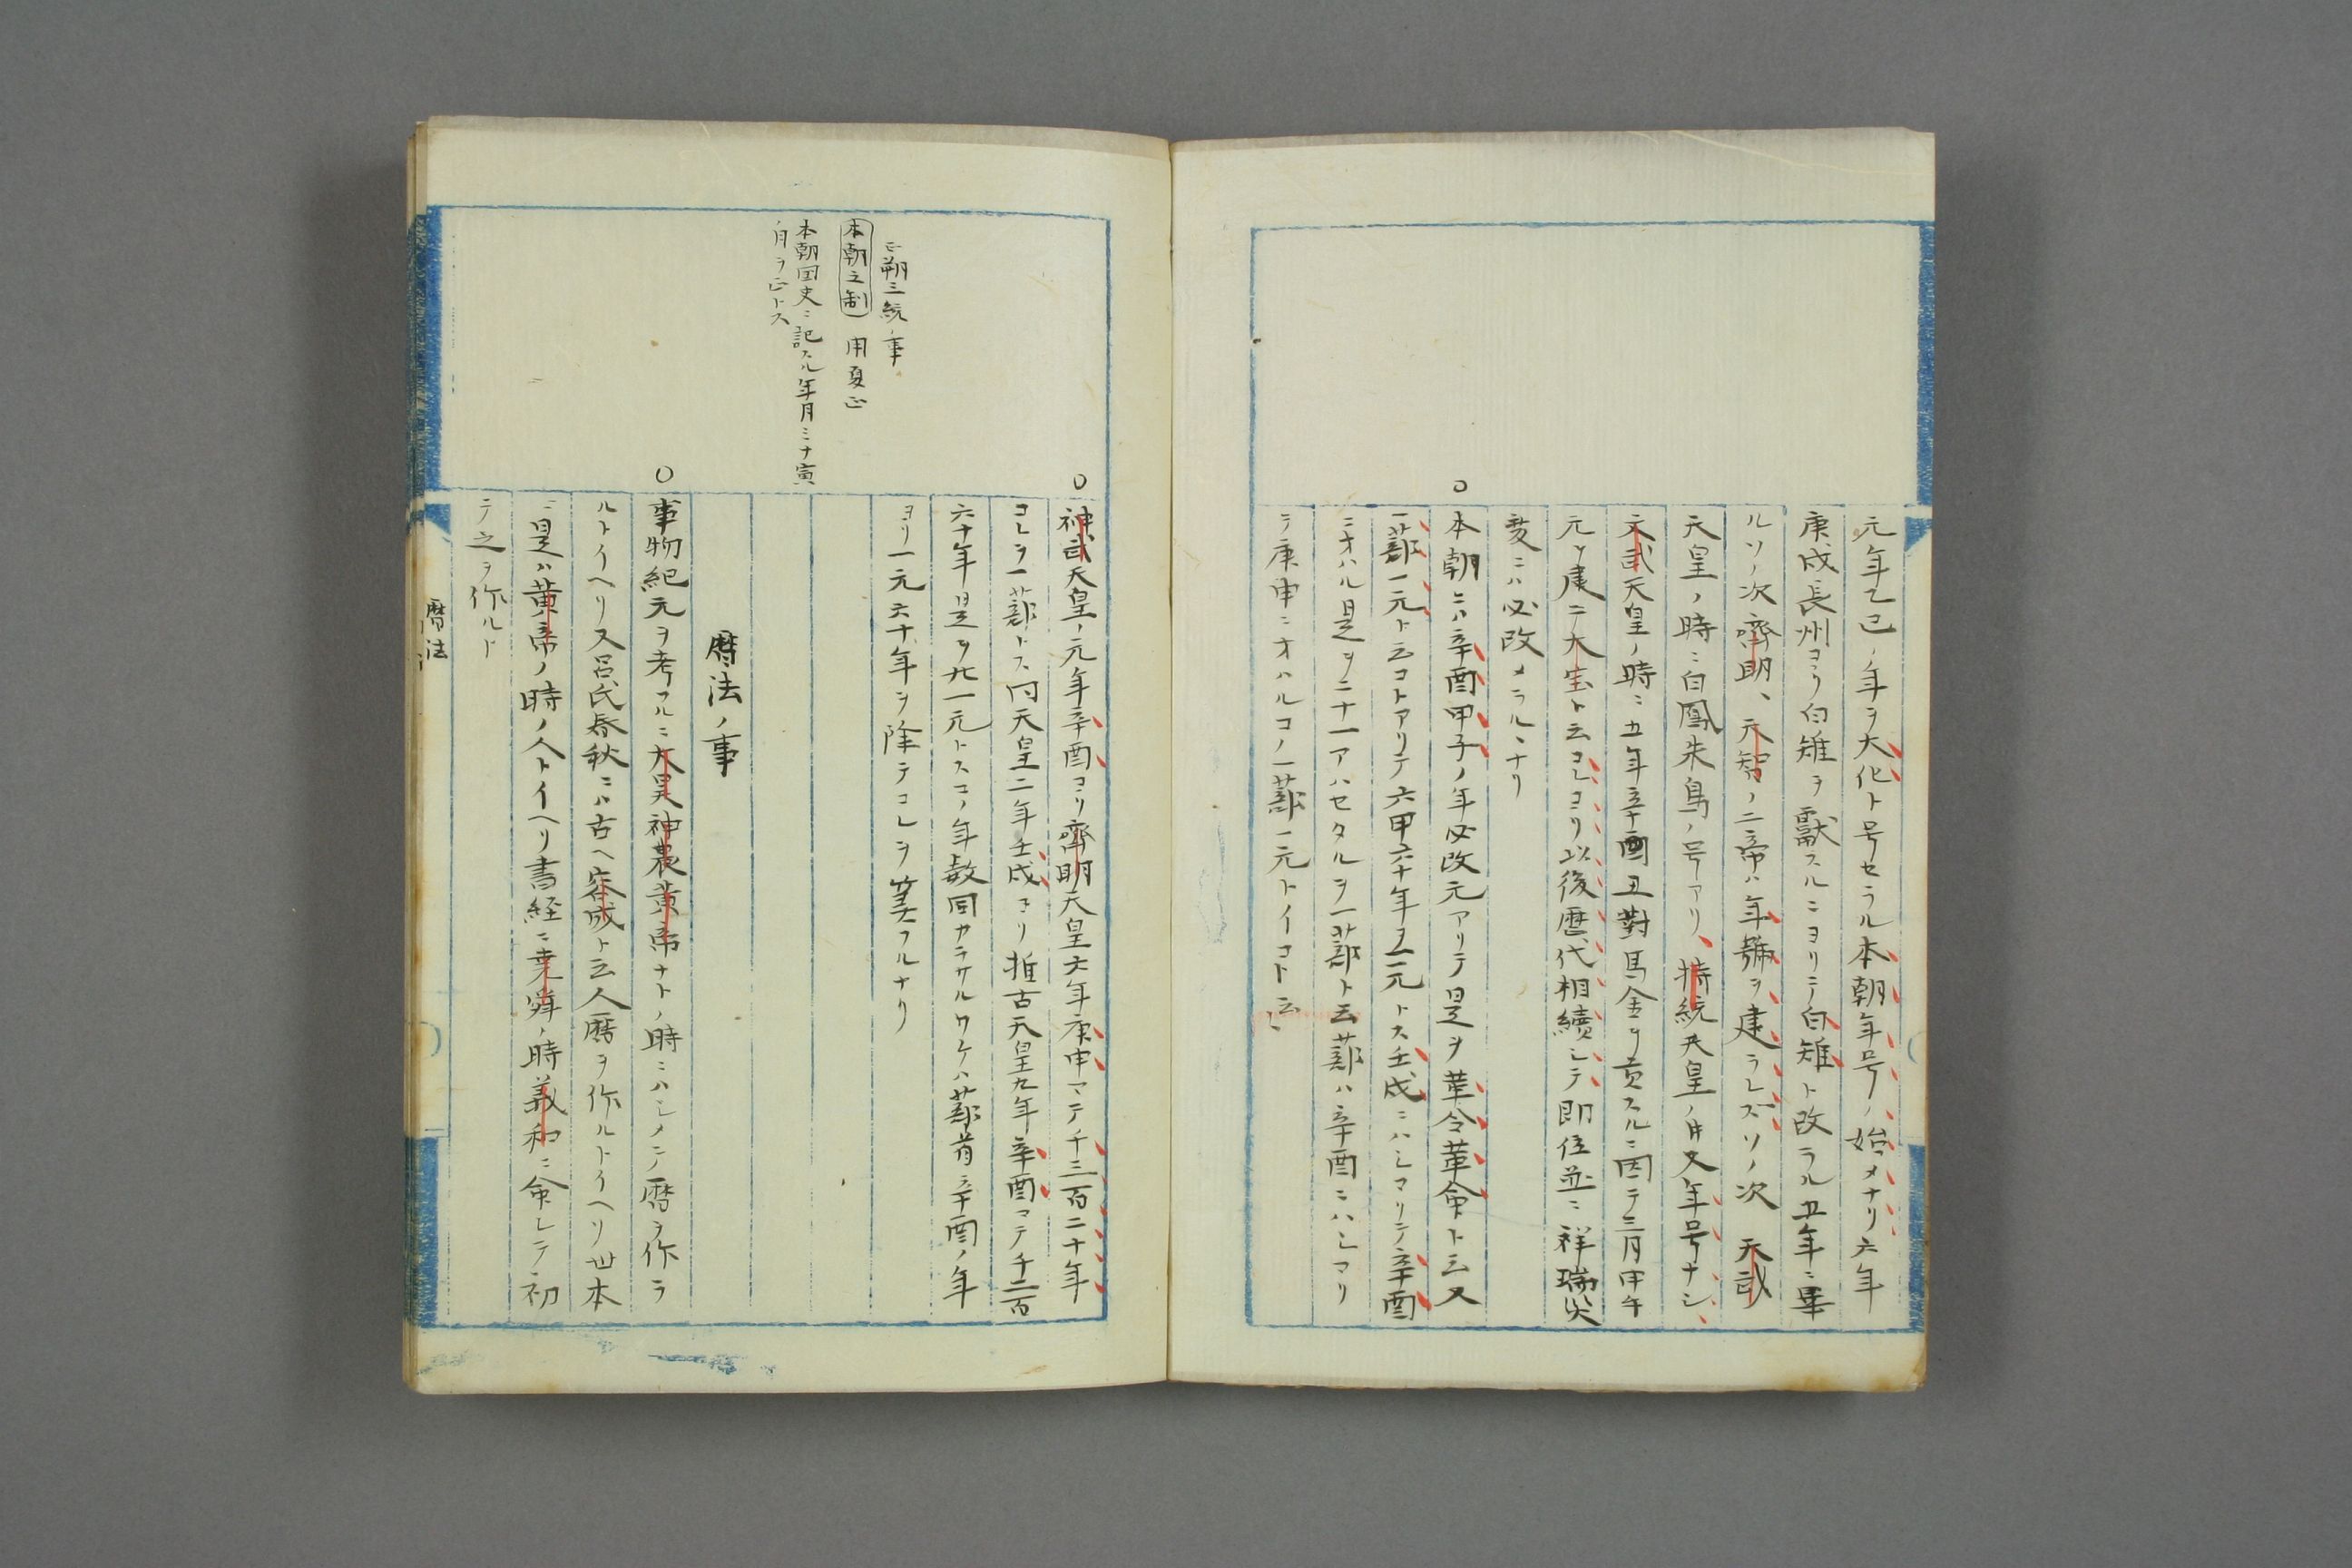 元年乙巳ノ年ヲ大化ト号セラル本朝年号ノ始メナリ六年
庚戌長州ヨリ白雉ヲ獻スルニヨリテ白雉ト改ラル五年ニ畢
ルソノ次齊明、天智ノ二帝ハ年號ヲ建ラレズソノ次 天武
天皇ノ時ニ白鳳朱鳥ノ号アリ、持統天皇ノ時又年号ナシ、
文武天皇ノ時ニ五年辛酉丑對馬金ヲ貢スルニ因テ三月甲午
元ヲ建テ大宝ト云コレヨリ以後歴代相續シテ即位並ニ祥瑞災
変ニハ必改メラルヽナリ
○本朝ニハ辛酉甲子ノ年必改元アリテ是ヲ革令革命ト云又
一蔀一元ト云コトアリテ六甲六十年ヲ一元トス壬戌ニハシマリテ辛酉
ニオハル是ヲ二十一アハセタルヲ一蔀ト云蔀ハ辛酉ニハシマリ
テ庚申ニオハルコノ一蔀一元トイコト云〻
○神武天皇ノ元年辛酉ヨリ齊明天皇六年庚申マテ千三百二十年
コレヲ一蔀トス同天皇二年壬戌ヨリ推古天皇九年辛酉マテ千二百
六十年是ヲ廿一元トスコノ年數同カラサルワケハ蔀首辛酉ノ年
ヨリ一元六十年ヲ除テコレヲ筭フルナリ
正朔三統ノ事
本朝之制 用夏正
本朝国史ニ記スル年月ミナ寅
ノ月ヲ正トス
暦法ノ事
○事物紀元ヲ考フルニ大昊神農黄帝ナトノ時ニハシメテ暦ヲ作ラ
ルトイヘリ又呂氏春秋ニハ古ヘ容成ト云人暦ヲ作ルトイヘリ世本
ニ是ハ黄帝ノ時ノ人トイヘリ書経ニ堯舜ノ時義和ニ命シテ初
テ之ヲ作ルト
暦法